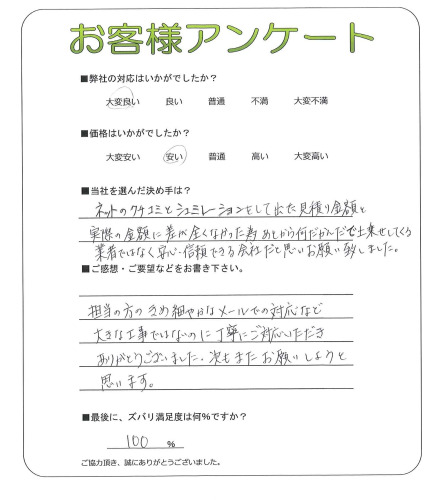 お客様アンケート
■弊社の対応はいかがでしたか？
大変良い 良い 普通 不満 大変不満
■価格はいかがでしたか？
大変安い 安い 普通 高い 大変高い
■当社を選んだ決め手は？
ネットのクチコミとシュミレーションをして出た見積り金額と
実際の金額に差が全くなかった為 あとから何だかんだで上乗せしてくる
業者ではなく安心・信頼できる会社だと思いお願い致しました。
■ご感想・ご要望などをお書き下さい。
担当の方のきめ細やかなメールでの対応など
大きな工事ではないのに丁寧にご対応いただき
ありがとうございました。次もまたお願いしようと
思います。
■最後に、ズバリ満足度は何%ですか？
100 %
ご協力頂き、誠にありがとうございました。